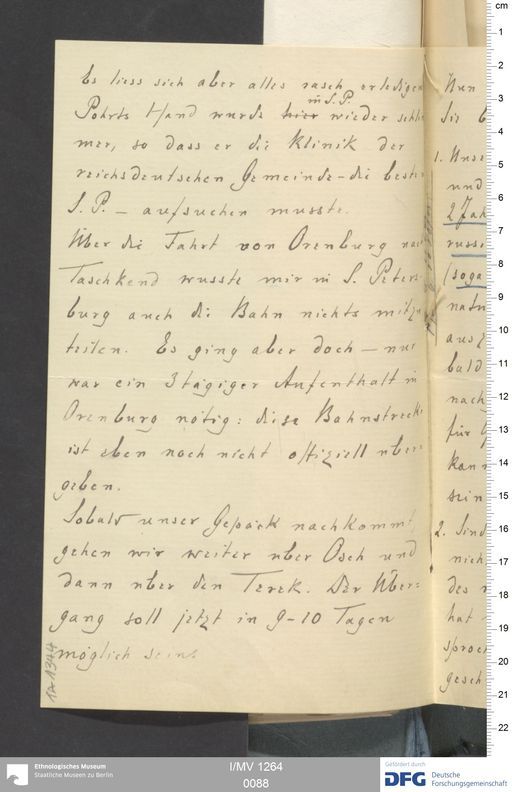 Es liess sich aber alles rasch erledigen
in S. P.
Pohrts Hand wurde hier wieder schlim
mer, so dass er die Klinik der
reichsdeutschen Gemeinde - die beste
S. P. - aufsuchen musste.
Über die Fahrt von Orenburg nach
Taschkend wusste mir in S. Peters
burg auch die Bahn nichts mitzu
teilen. Es ging aber doch - nur
war ein 3tägiger Aufenthalt in
Orenburg nötig: diese Bahnstrecke
ist eben noch nicht offiziell über=
geben.
Sobald unser Gepäck nachkommt,
gehen wir weiter über Osch und
dann über den Terek. Der Über=
gang soll jetzt in 9-10 Tagen
möglich sein.
1A 1344
Nun
Sie
1. Unse
und
2 Jah
russi
(soga
natu
ausz
bald
nach
für
kann
sein
2. Sind
nich
des
hat
sproch
gesch
cm
1
2
3
4
5
6
7
8
9
10
11
12
13
14
15
16
17
18
19
20
21
22
Ethnologisches Museum
Staatliche Museen zu Berlin
I/MV 1264
0088
Gefördert durch
DFG Deutsche
Forschungsgemeinschaft